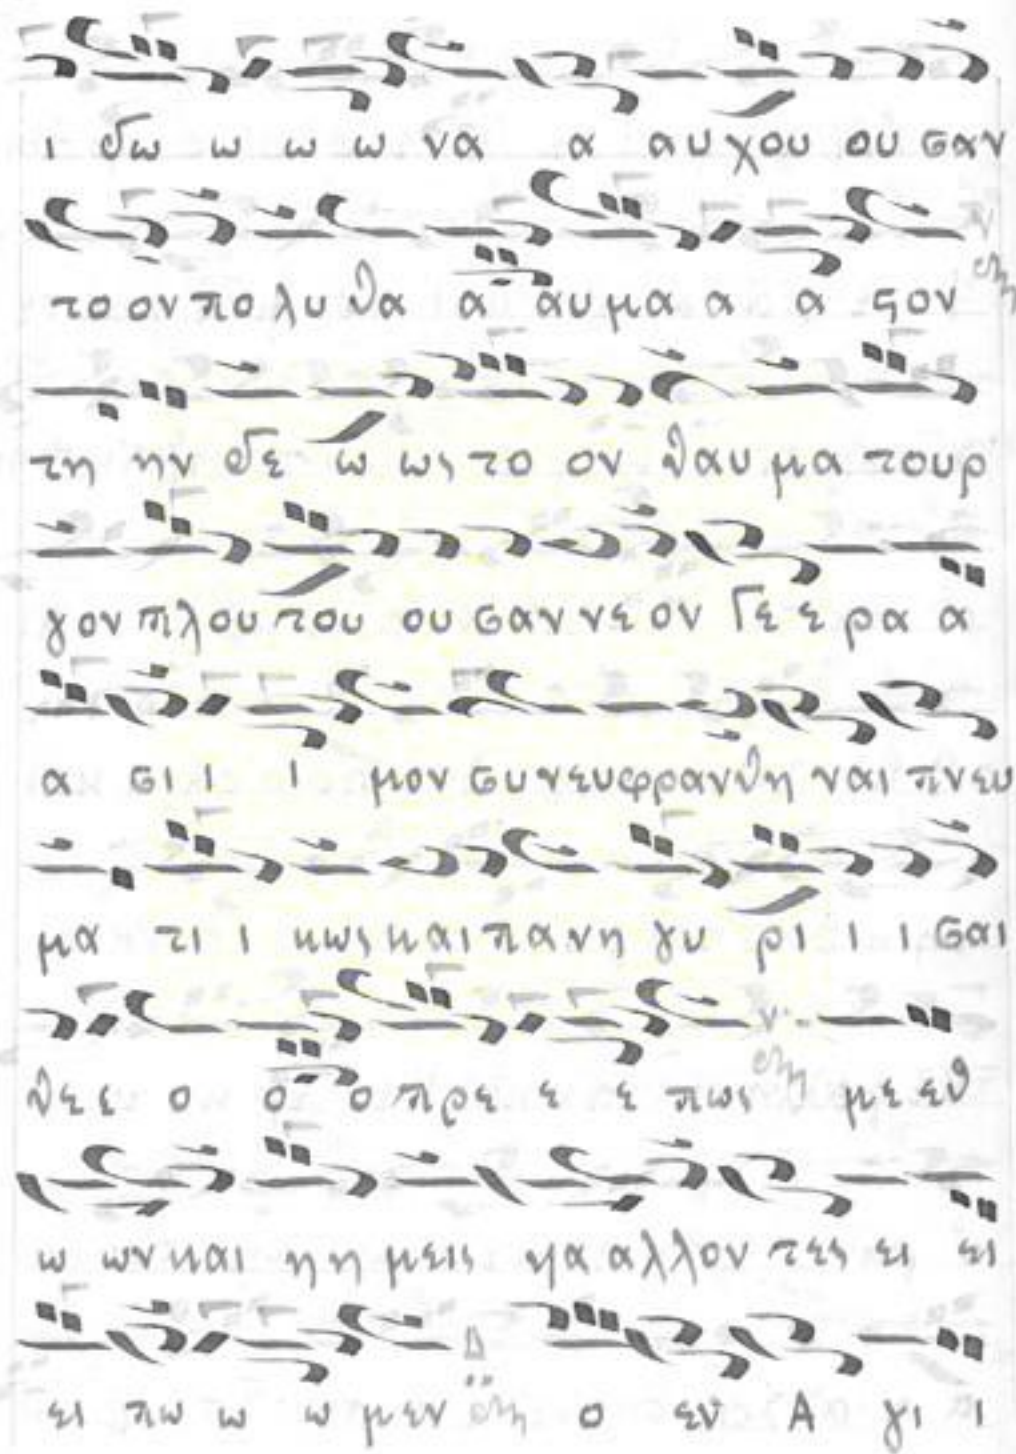 ι δω ω ω ω να α αυ χου ου σαν
το ον πο λυ θα α αυ μα α α ϛον
τη ην δε ω ως το ον θαυ μα τουρ
γον πλου του ου σαν νε ον Γε ε ρα α
α σι ι ι μον συν ευφρανθη ναι πνευ
μα τι ι κως και πα νη γυ ρι ι ι σαι
θε ε ο ο ο πρε ε ε πως με εθ
ω ων και η η μεις ψα αλλον τες ει ει
ει πω ω ω μεν Δ ο εν Α γι ι